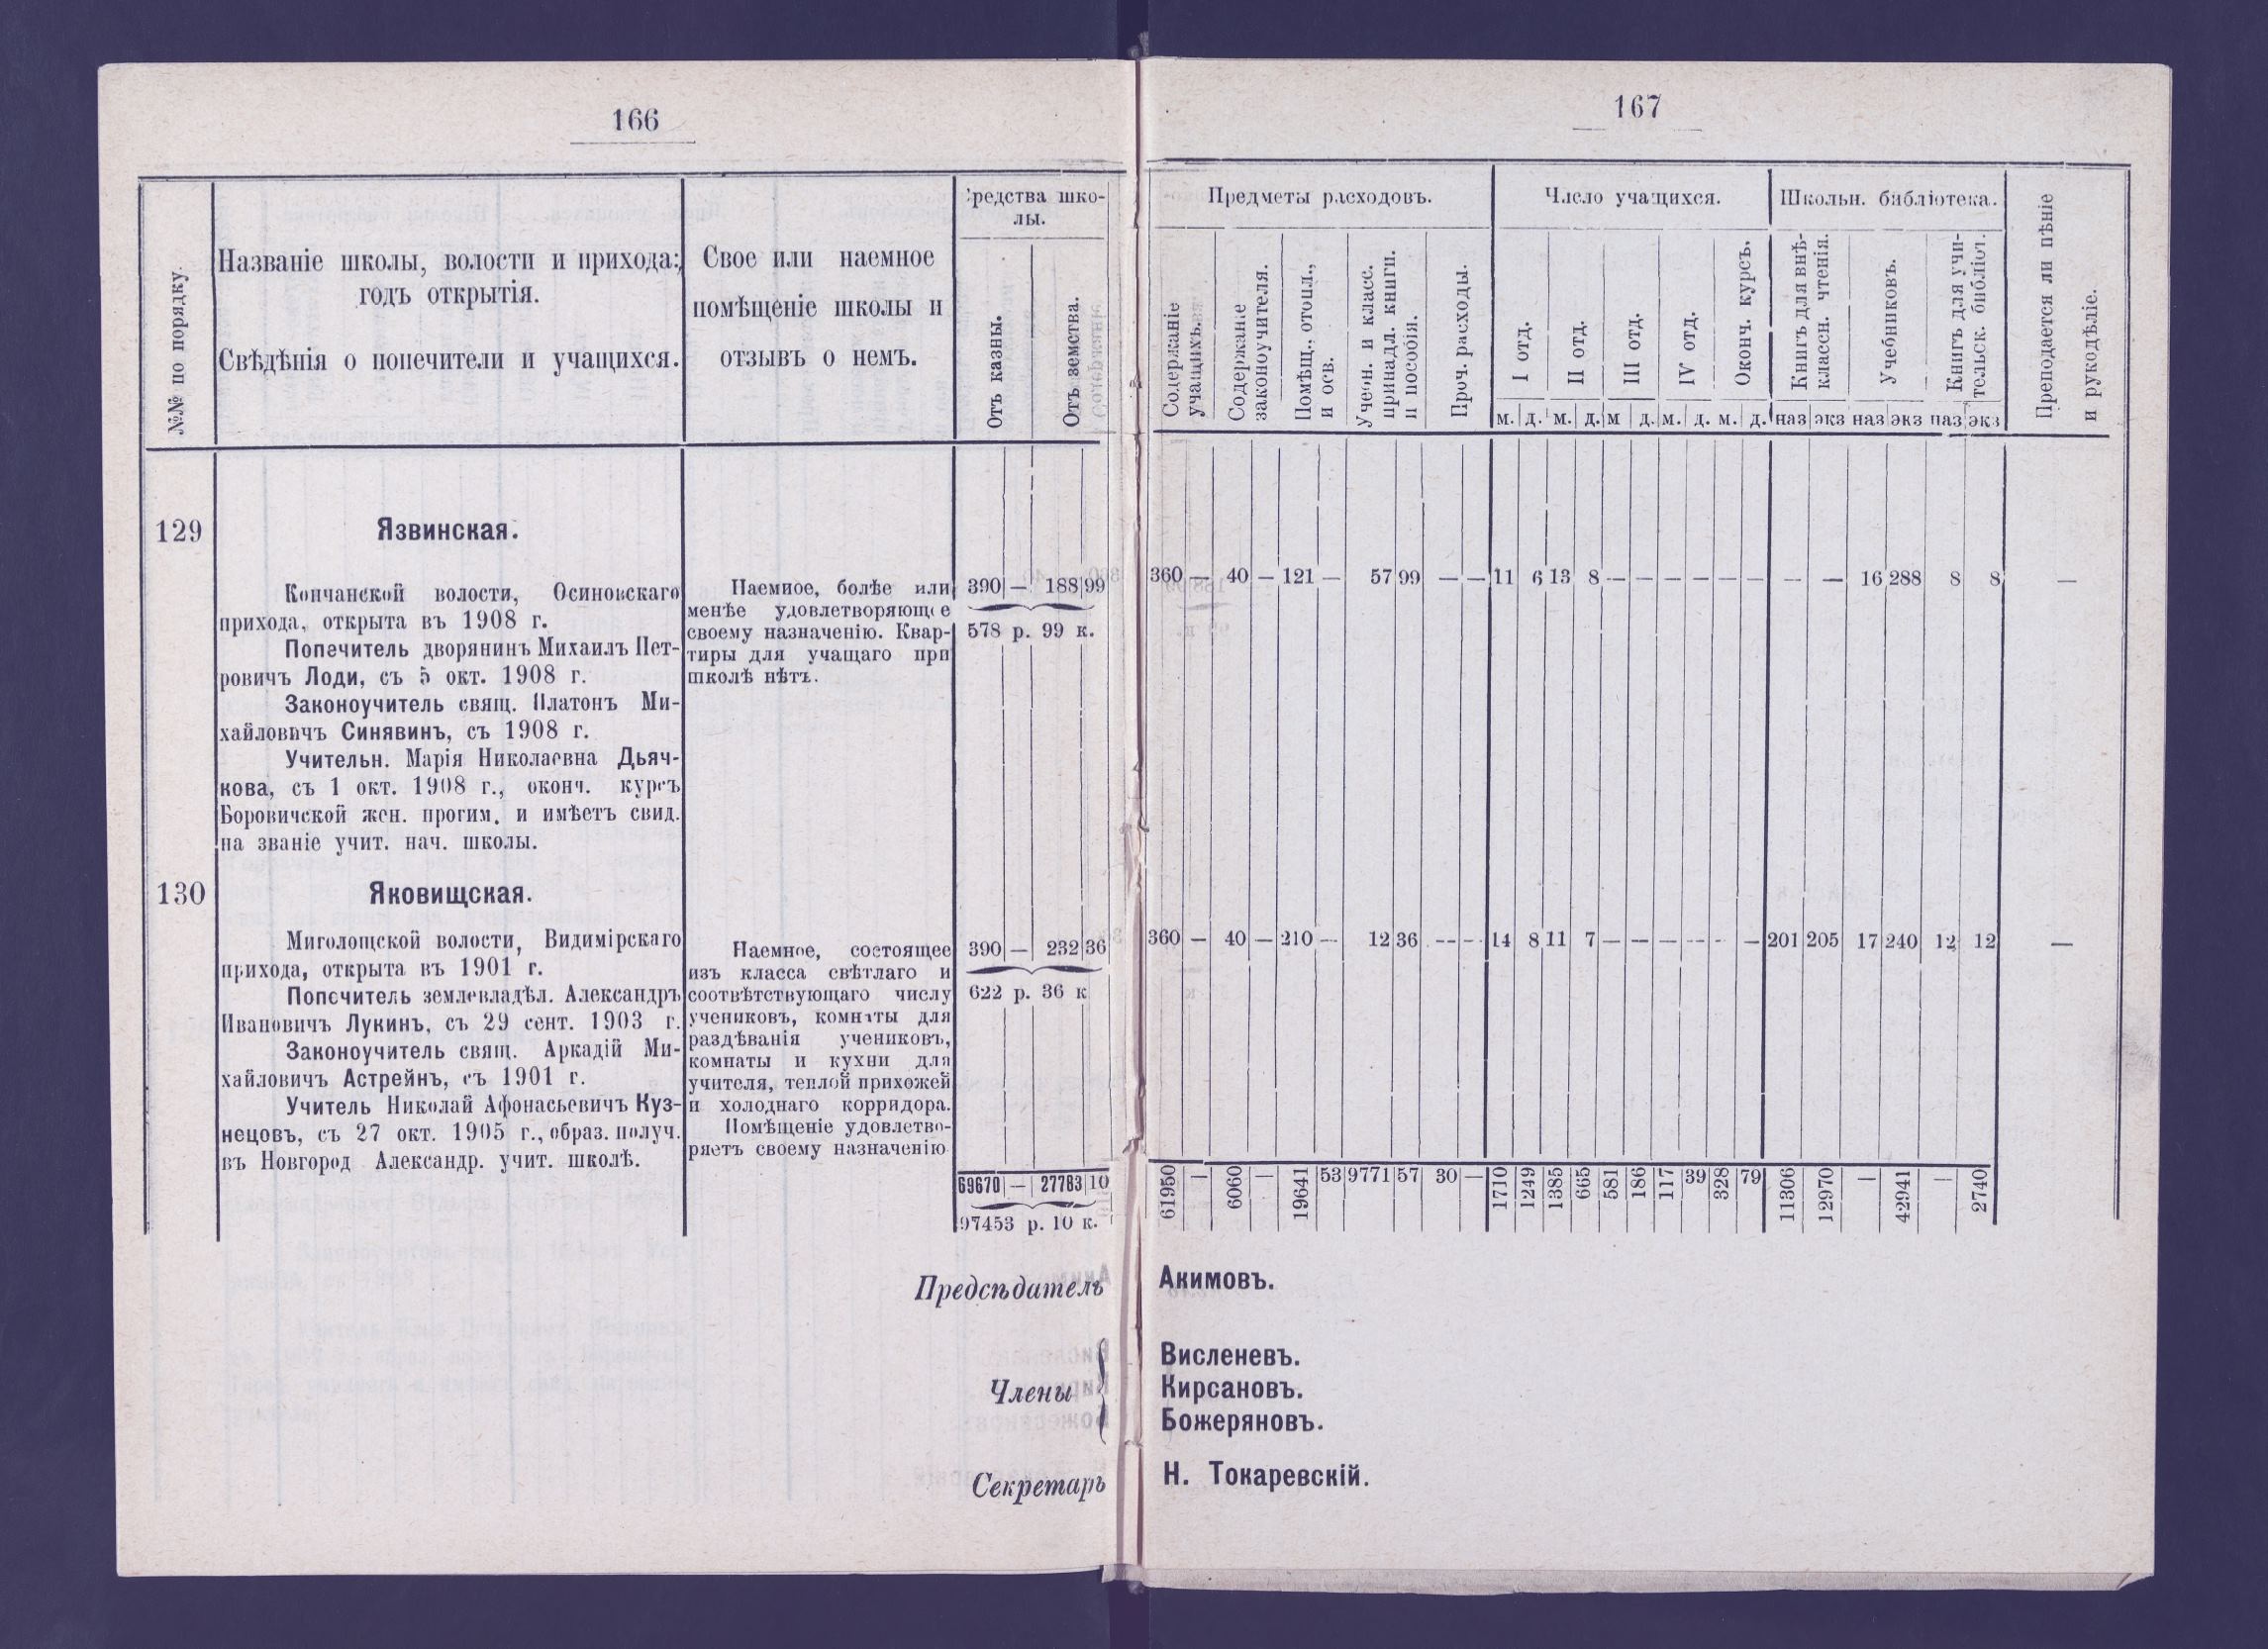 166
№№ по порядку.
Названіе школы, волости и прихода:
годъ открытія.
Свѣдѣнія о попечители и учащихся.
Свое или наемное
помѣщеніе школы и
отзывъ о немъ.
редства шко-
лы.
Отъ казны.
Отъ земства.
129
Язвинская.
Кончанской волости, Осиновскаго
прихода, открыта въ 1908 г.
Попечитель дворянинъ Михаилъ Пет-
ровичъ Лоди, съ 5 окт. 1908 г.
Законоучитель свящ. Платонъ Ми-
хайловичъ Синявинъ, съ 1908 г.
Учительн. Марія Николаевна Дьяч-
кова, съ 1 окт. 1908 г., оконч. курсъ
Боровичской жен. прогим. и имѣетъ свид.
на званіе учит. нач. школы.
Наемное, болѣе или
менѣе удовлетворяющее
своему назначенію. Квар-
тиры для учащаго при
школѣ нѣтъ.
390 — 188 99
578 р. 99 к.
130
Яковищская.
Миголощской волости, Видимірскаго
прихода, открыта въ 1901 г.
Попечитель землевладѣл. Александръ
Ивановичъ Лукинъ, съ 29 сент. 1903 г.
Законоучитель свящ. Аркадій Ми-
хайловичъ Астрейнъ, съ 1901 г.
Учитель Николай Афонасьевичъ Куз-
нецовъ, съ 27 окт. 1905 г., образ. получ.
въ Новгород Александр. учит. школѣ.
Наемное, состоящее
изъ класса свѣтлаго и
соотвѣтствующаго числу
учениковъ, комнаты для
раздѣванія учениковъ,
комнаты и кухни для
учителя, теплой прихожей
и холоднаго корридора.
Помѣщеніе удовлетво-
ряетъ своему назначенію
390 — 232 36
622 р. 36 к
69670 — 27783 10
97453 р. 10 к.
Предсѣдатель
Члены
Секретарь
167
Предметы расходовъ.
Число учащихся.
Школьн. библіотека.
Преподается ли пѣніе
и рукодѣліе.
Содержаніе
учащихъ.
Содержаніе
законоучителя.
Помѣщ., отопл.,
и осв.
Учебн. и класс.
принадл. книги.
и пособія.
Проч. расходы.
I отд.
II отд.
III отд.
IV отд.
Оконч. курсъ.
Книгъ для внѣ-
классн. чтенія.
Учебниковъ.
Книгъ для учи-
тельск. библіот.
м. д. м. д. м д. м. д. м. д. наз экз наз экз наз экз
360 — 40 — 121 — 57 99 — — 11 6 13 8 — — — — — — — — 16 288 8 8 —
360 — 40 — 210 — 12 36 — — 14 8 11 7 — — — — — — 201 205 17 240 12 12 —
61950 — 6060 — 19641 53 9771 57 30 — 1710 1249 1385 665 581 186 117 39 328 79 11306 12970 — 42941 — 2740
Акимовъ.
Висленевъ.
Кирсановъ.
Божеряновъ.
Н. Токаревскій.